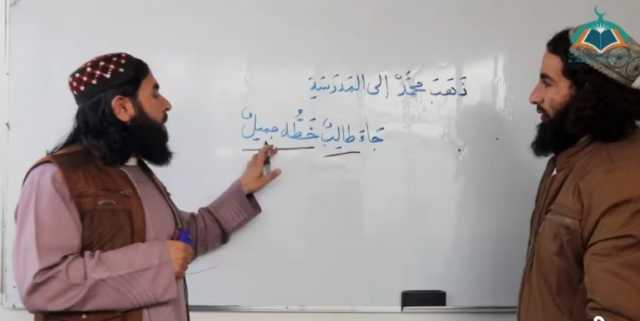 ذَهَبَ مُحَمَّدٌ إلى المَدرَسَةِ
جَاءَ طَالِبٌ خَطُّه جميلٌ